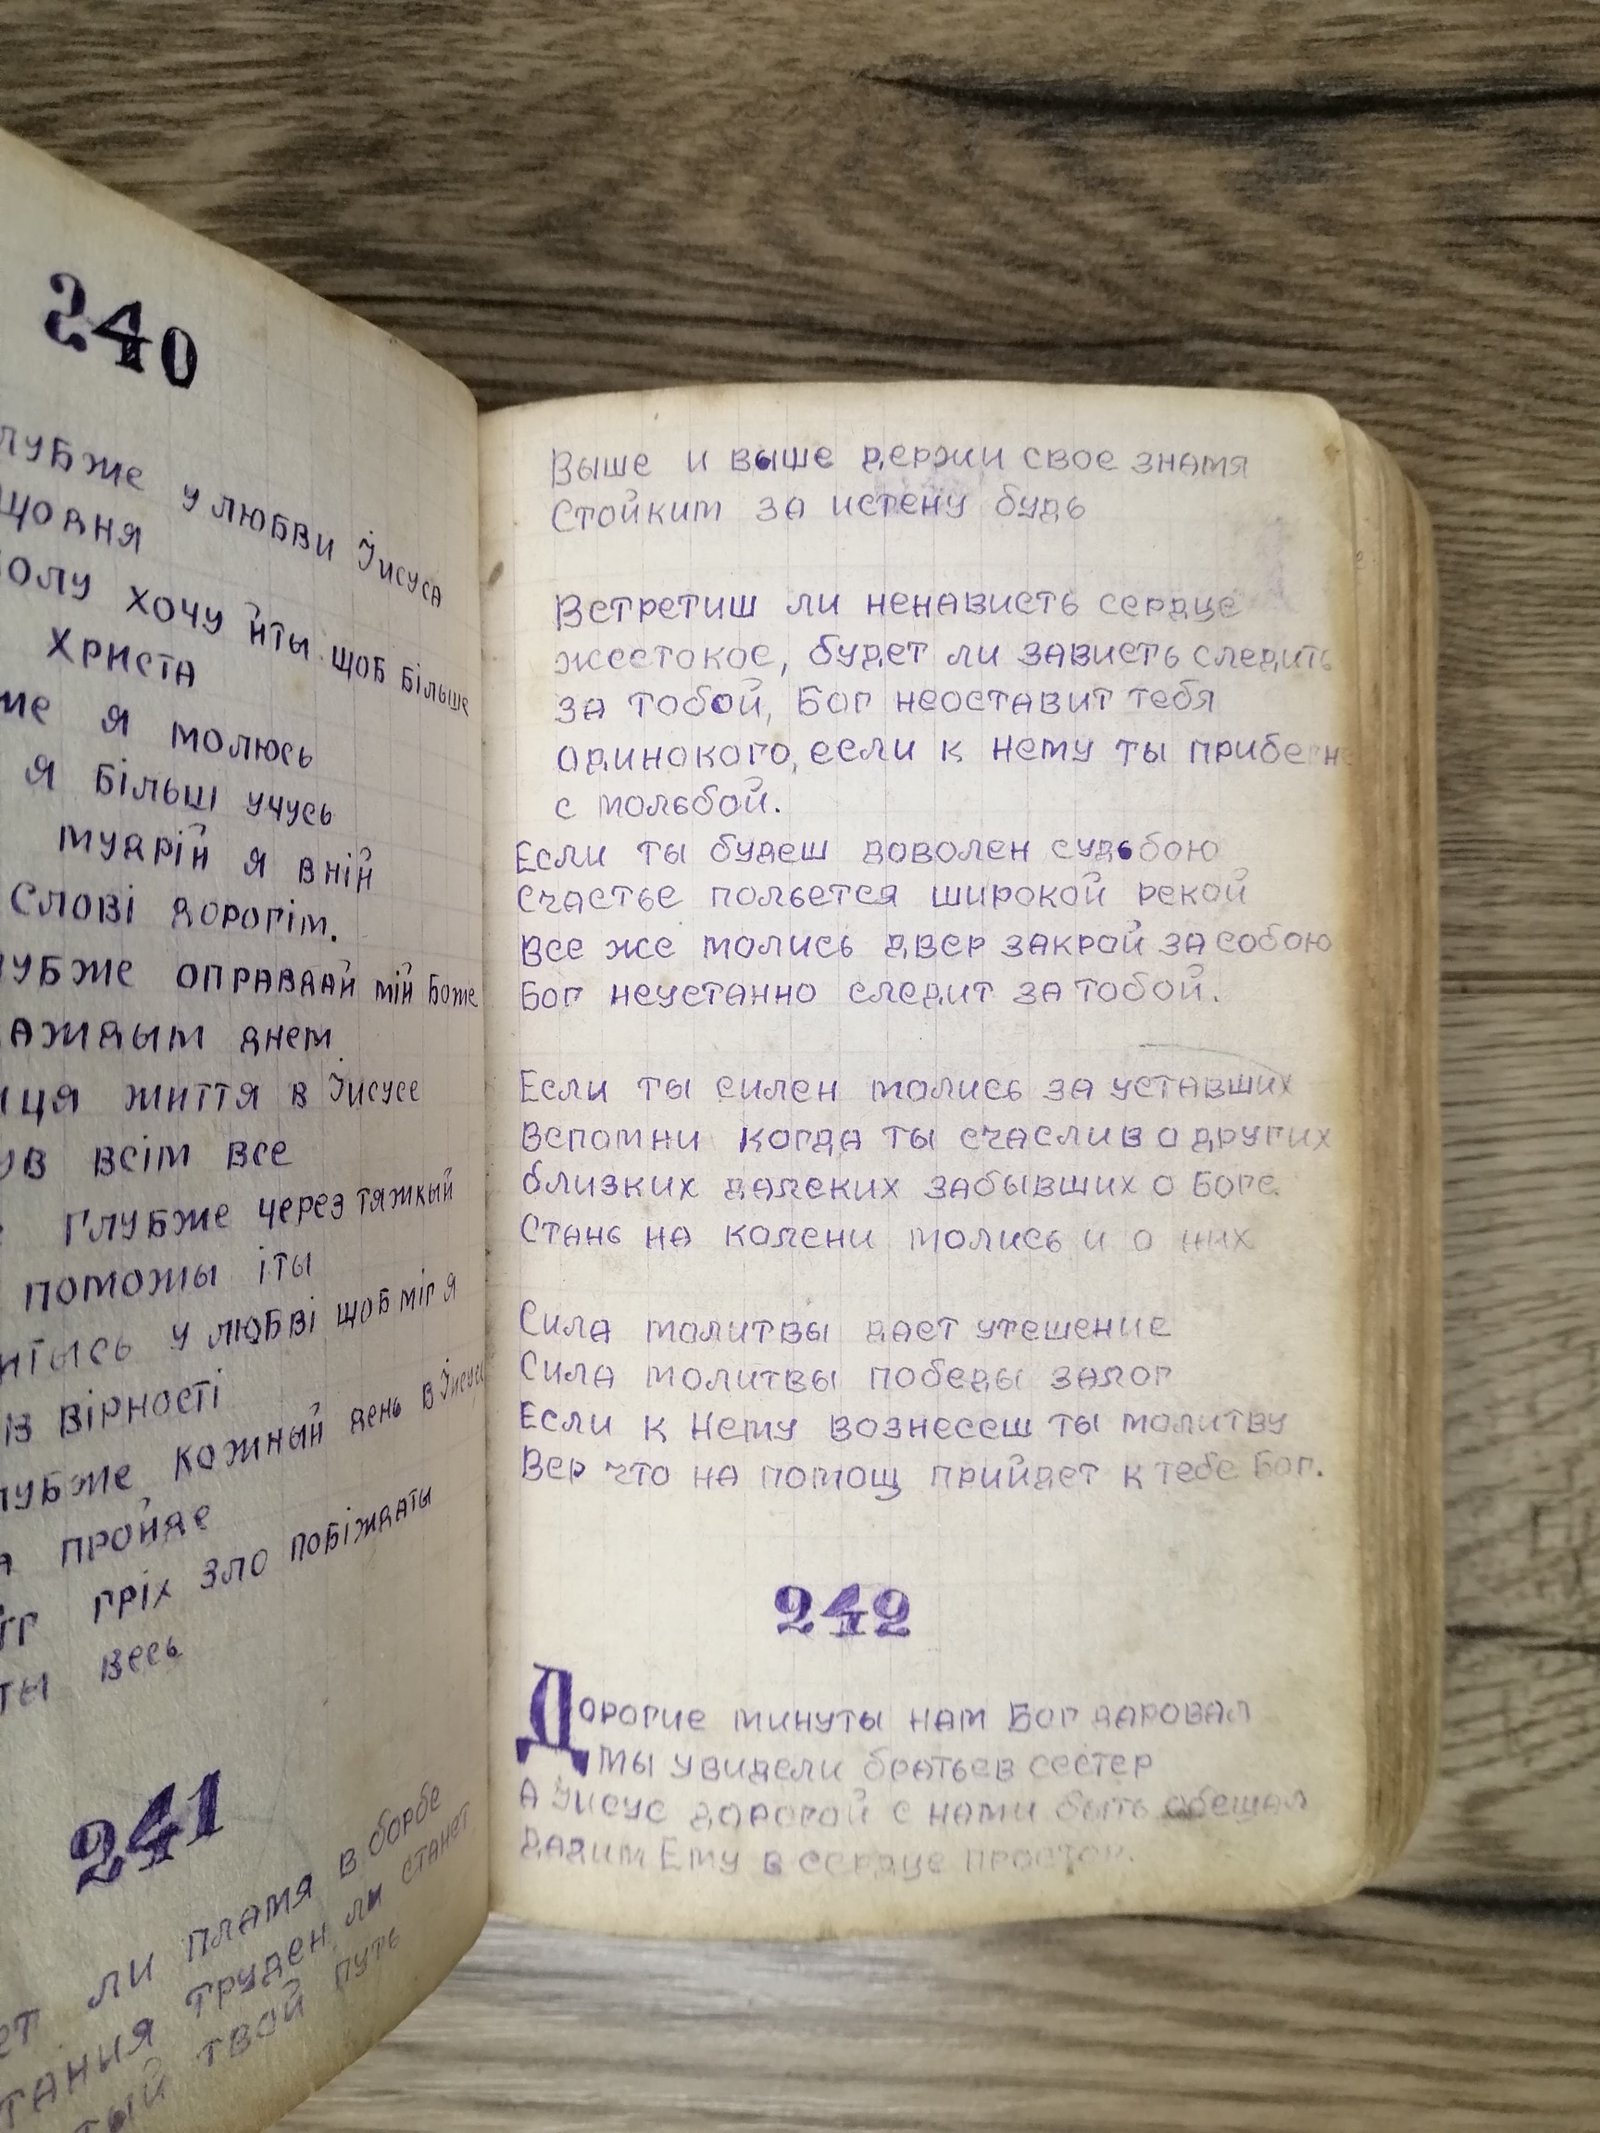 240
у любви Іисуса
щодня
хочу йты щоб більше
Христа
я молюсь
я більші учусь
мудрій я в ній
Слові дорогім.
оправдай мій Боже
днем
життя в Іисусе
всім все
Глубже через тяжкый
поможы іты
у любві щоб міг я
вірності
кожный день в Іисусе
пройде
гріх зло побіждаты
весь
241
ли пламя в борбе
труден ли станет
твой путь
Выше и выше держи свое знамя
Стойким за истену будь
Встретиш ли ненависть сердце
жестокое, будет ли зависть следить
за тобой, Бог неоставит тебя
одинокого, если к нему ты прибегн
с мольбой.
Если ты будеш доволен судьбою
Счастье польется широкой рекой
Все же молись двер закрой за собою
Бог неустанно следит за тобой.
Если ты силен молись за уставших
Вспомни когда ты счаслив о других
близких далеких забывших о Боге
Стань на колени молись и о них
Сила молитвы дает утешение
Сила молитвы победы залог
Если к Нему вознесеш ты молитву
Вер что на помощ прийдет к тебе Бог.
242
Дорогие минуты нам Бог даровал
мы увидели братьев сестер
А Іисус дорогой с нами быть обещал
дадим Ему в сердце простор.